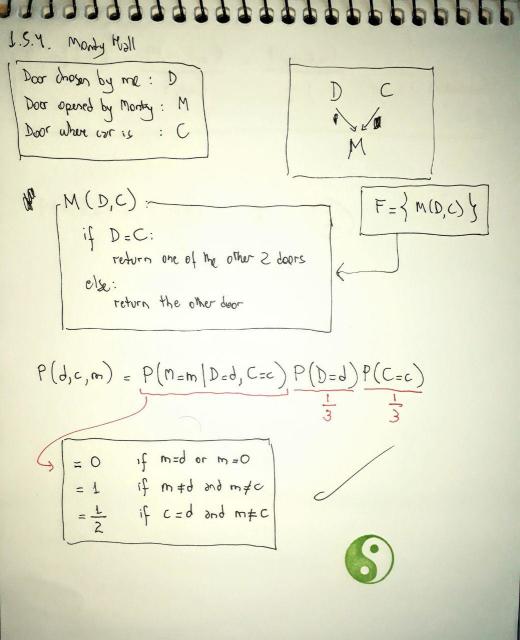 1.5.4. Monty Hall
Door chosen by me : D
Door opened by Monty : M
Door where car is : C
D C
M
M(D,C):
if D=C:
return one of the other 2 doors
else:
return the other door
F={M(D,C)}
P(d,c,m) = P(M=m|D=d,C=c) P(D=d) P(C=c)
1/3 1/3
= 0 if m=d or m=0
= 1 if m≠d and m≠c
= 1/2 if c=d and m≠c